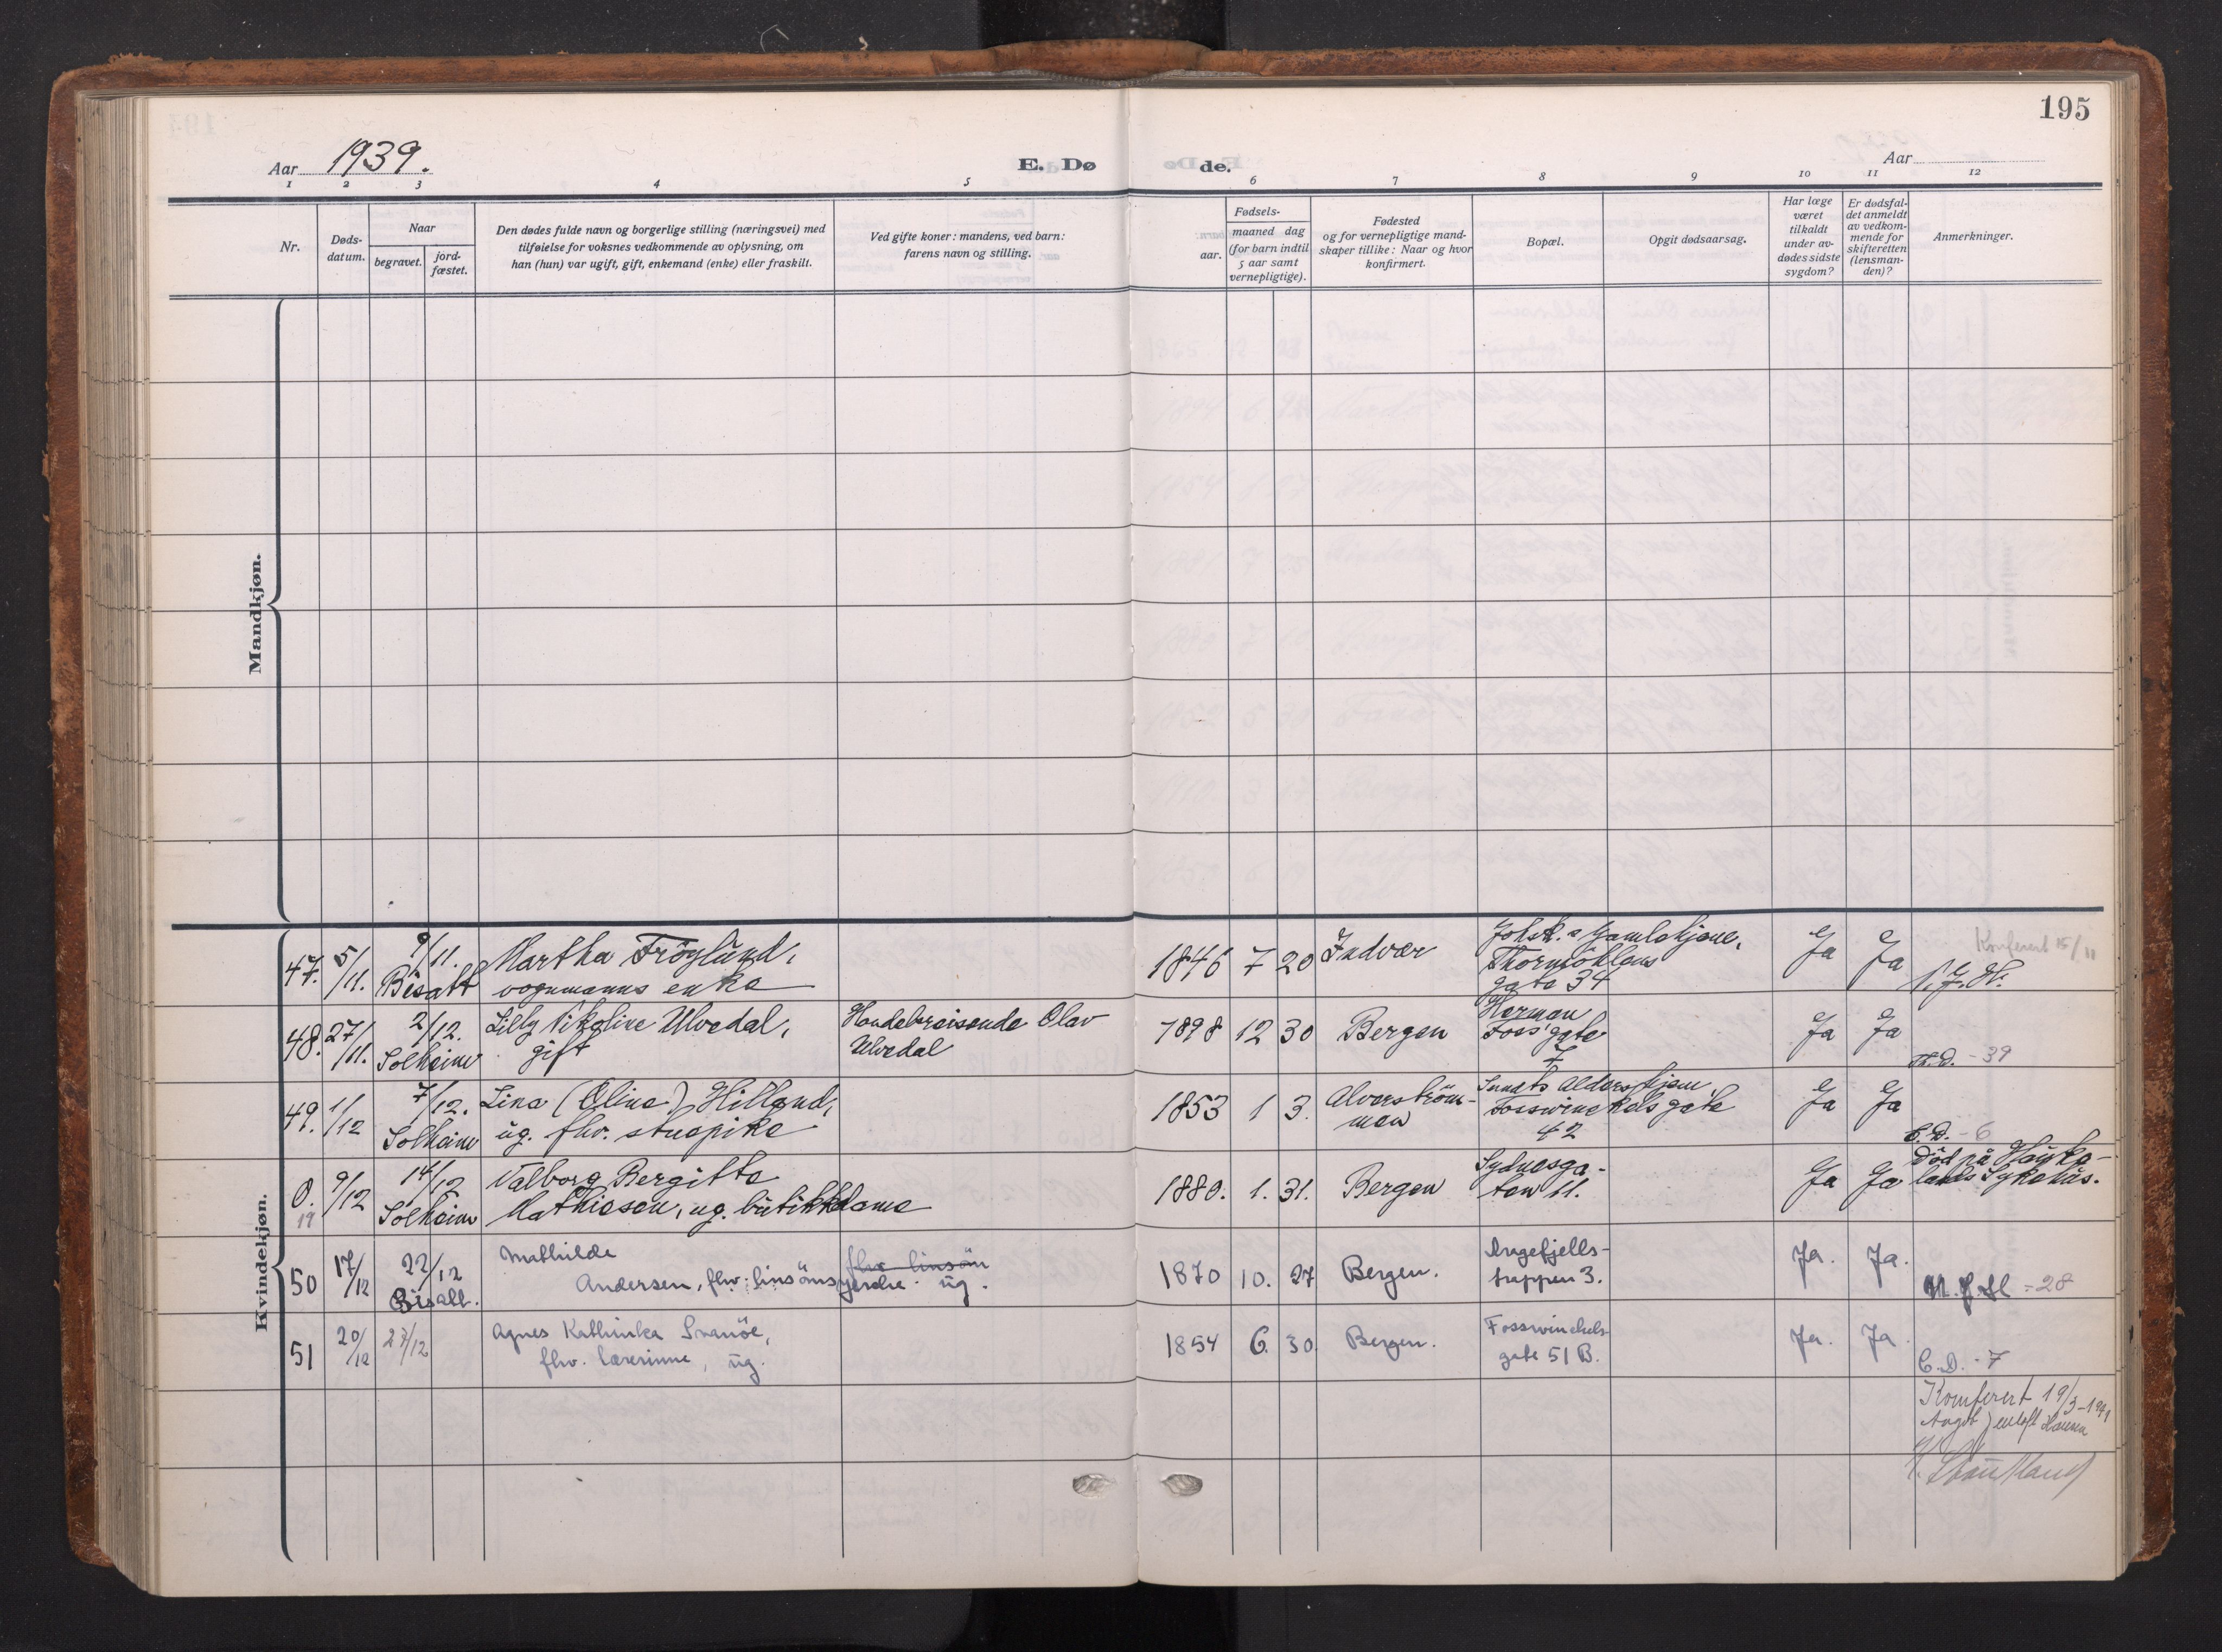 195
Aar 1939.
E. Dø
de.
Aar
1 2 3 4 5 6 7 8 9 10 11 12
Nr.
Døds-
datum.
Naar
begravet.
jord-
fæstet.
Den dødes fulde navn og borgerlige stilling (næringsvei) med
tilføielse for voksnes vedkommende av oplysning, om
han (hun) var ugift, gift, enkemand (enke) eller fraskilt.
Ved gifte koner: mandens, ved barn:
farens navn og stilling.
aar.
Fødsels-
maaned dag
(for barn indtil
5 aar samt
vernepligtige).
Fødested
og for vernepligtige mand-
skaper tillike: Naar og hvor
konfirmert.
Bopæl.
Opgit dødsaarsag.
Har læge
været
tilkaldt
under av-
dødes sidste
sygdom?
Er dødsfal-
det anmeldt
av vedkom-
mende for
skifteretten
(lensman-
den)?
Anmerkninger.
Mandkjøn.
Kvindekjøn.
47. 5/11. 9/11. Bisatt
Martha Fröglund,
vognmanns enke
1846 7 20 Indvær
Joh.k.s Gamlehjem,
Thormöhlens
gate 34
Ja Ja
Konferert 15/11
N.J.H.
48. 27/11. 2/12. Solheim
Lilly Nikoline Ulvedal,
gift
Handelsreisende Olav
Ulvedal
1898 12 30 Bergen
Herman
Foss' gate
7
Ja Ja
Th.D. - 39
49. 1/12 7/12. Solheim
Lina (Oline) Hilland,
ug. fhv. stuepike
1853 1 3. Alverström-
men
Sundts Aldershjem,
Fosswinckels gate
42
Ja Ja
C.D. - 6
0. 19 9/12 14/12 Solheim
Valborg Bergitte
Mathiesen, ug. butikkdame
1880. 1. 31. Bergen
Sydnesga-
ten 11.
Ja Ja
Död på Hauke-
lands Sykehus.
50 17/12 22/12 Bisatt.
Mathilde
Andersen, fhv. linsömsyerske. ug.
fhv linsöm
1870 10. 27 Bergen.
Langefjells-
trappen 3.
Ja. Ja.
N.J.H - 28
51 20/12 27/12
Agnes Kathinka Svanöe,
fhv. lærerinne, ug.
1854 6. 30 Bergen.
Fosswinckels-
gate 51 B.
Ja. Ja.
C.D. - 7
Konferert 19/3-1941